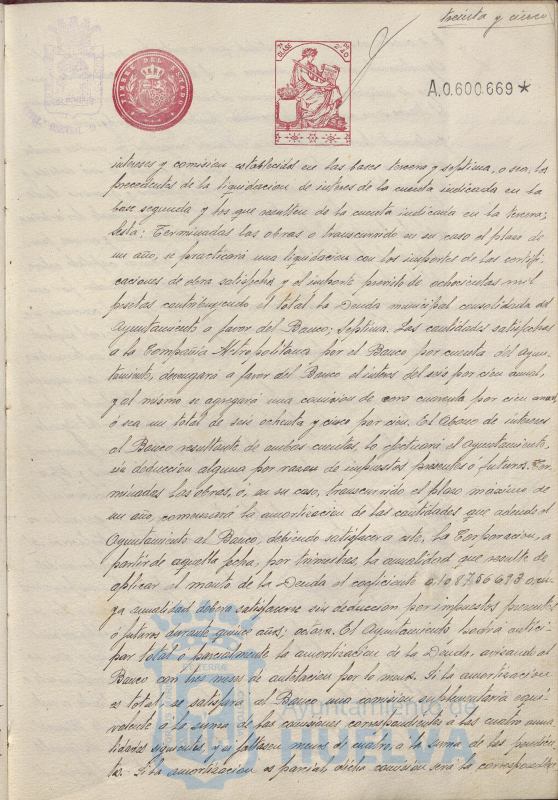 treinta y cinco
TIMBRE DEL ESTADO
CLASE
A.0.600.669*
intereses y comision establecidos en las bases tercera y septima, o sea, los
procedentes de la liquidacion de interes de la cuenta indicada en la
base segunda y los que resulten de la cuenta indicada en la tercera;
Sexta: Terminadas las obras o transcurrido en su caso el plazo de
un año, se practicará una liquidacion con los importes de las certifi-
caciones de obra satisfechas y el importe previsto de ochocientas mil
pesetas contribuyendo el total la Deuda municipal consolidada del
Ayuntamiento a favor del Banco; Septima. Las cantidades satisfechas
a la Compañia Metropolitana por el Banco por cuenta del Ayun-
tamiento, devengará a favor del Banco el interes del seis por cien anual,
y al mismo se agregará una comision de cero cuarenta por cien anual
ó sea un total de seis ochenta y cinco por cien. El abono de intereses
al Banco resultante de ambas cuentas, lo efectuará el Ayuntamiento,
sin deduccion alguna por razon de impuestos presentes ó futuros. Ter-
minadas las obras, ó, en su caso, transcurrido el plazo máximo de
un año, comenzará la amortizacion de las cantidades que adeude el
Ayuntamiento al Banco, debiendo satisfacer a este, la Corporacion, a
partir de aquella fecha, por trimestres, la anualidad que resulte de
aplicar el monto de la Deuda el coeficiente 0'108756693 cu-
ya anualidad deberá satisfacerse sin deduccion por impuestos presentes
ó futuros durante quince años; octava. El Ayuntamiento podrá antici-
par total ó parcialmente la amortizacion de la Deuda, avisando al
Banco con tres meses de antelacion por lo menos. Si la amortizacion
es total se satisfará al Banco una comision suplementaria equi-
valente á la suma de las comisiones correspondientes á las cuatro anua-
lidades siguientes, y si faltasen menos de cuatro, a la suma de las pendien-
tes. Si la amortizacion es parcial dicha comision será la correspondiente
Ayuntamiento de
HUELVA